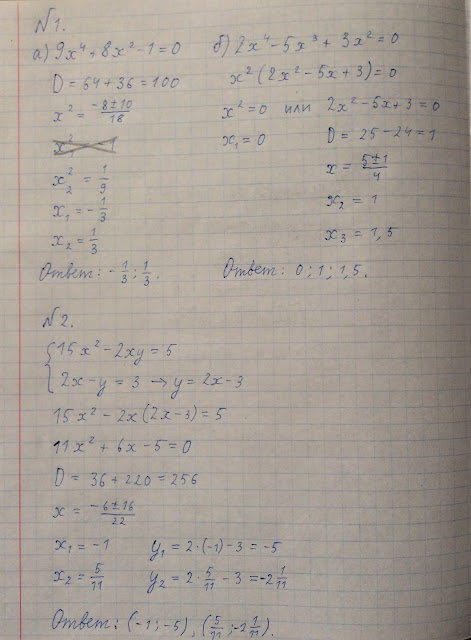 №1.
а) 9x⁴+8x²-1=0
D = 64+36=100
x² = -8±10/18
x₂² = 1/9
x₁ = -1/3
x₂ = 1/3
Ответ: -1/3; 1/3.
б) 2x⁴-5x³+3x²=0
x²(2x²-5x+3)=0
x²=0 или 2x²-5x+3=0
x₁=0 D = 25-24=1
x = 5±1/4
x₂ = 1
x₃ = 1,5
Ответ: 0; 1; 1,5.
№2.
{15x²-2xy=5
2x-y=3 → y=2x-3
15x²-2x(2x-3)=5
11x²+6x-5=0
D = 36+220=256
x = -6±16/22
x₁ = -1 y₁ = 2·(-1)-3=-5
x₂ = 5/11 y₂ = 2·5/11-3=-2 1/11
Ответ: (-1;-5), (5/11;-2 1/11).